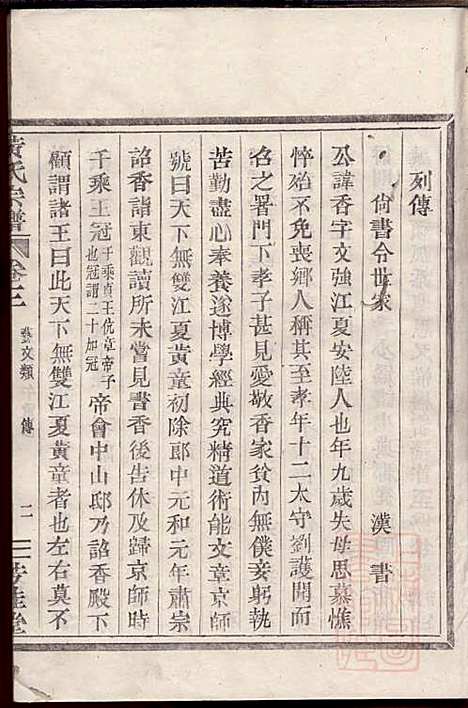 列傳
尙書令世家　漢書
公諱香字文強江夏安陸人也年九歲失母思慕憔
悴殆不免喪鄉人稱其至孝年十二太守劉護聞而
召之署門下孝子甚見愛敬香家貧內無僕妾躬執
苦勤盡心奉養遂博學經典究精道術能文章京師
號曰天下無雙江夏黃童初除郎中元和元年肅宗
詔香詣東觀讀所未嘗見書香後告休及歸京師時
千乘王冠千乘貞王伉章帝子也冠謂二十加冠帝會中山邸乃詔香殿下
顧謂諸王曰此天下無雙江夏黃童者也左右莫不
黃氏宗譜
卷二
藝文類
傳
二